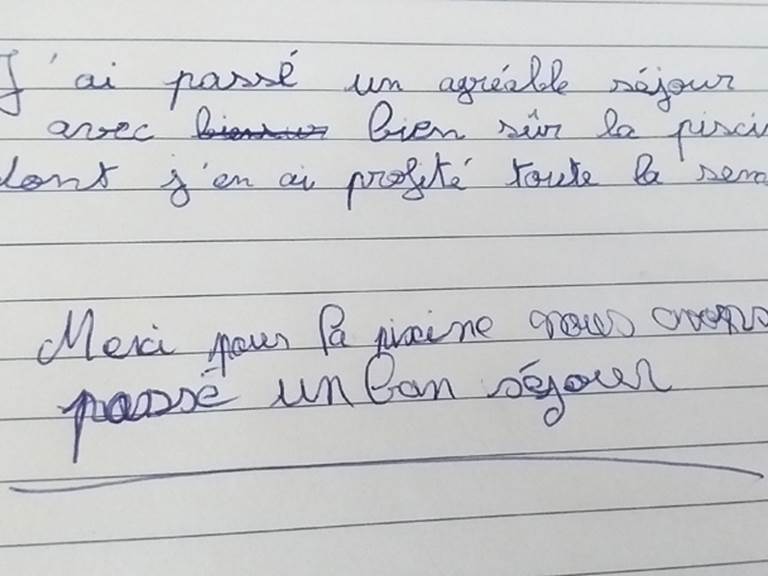 J'ai passé un agréable séjour
avec bien sûr la pisci
dont j'en ai profité toute la sema
Merci pour la piscine nous avons
passé un bon séjour